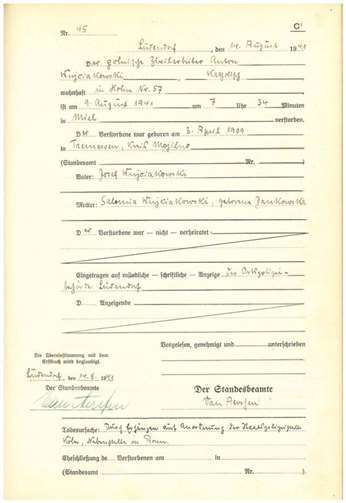 Nr. 45
C¹
Lüdendorf, den 14. August 1941
Der polnische Zivilarbeiter Anton
Wujciakowski,
wohnhaft in Köln Nr. 57
ist am 9. August 1941 um 7 Uhr 34 Minuten
in Miel verstorben.
D Verstorbene war geboren am 3. April 1909
in Tremessen, Kreis Mogilno
(Standesamt Nr. )
Vater: Josef Wujciakowski
Mutter: Salomia Wujciakowski, geborene Jankowski
Der Verstorbene war — nicht — verheiratet
Eingetragen auf mündliche — schriftliche — Anzeige der Ortspolizei-
behörde Lüdendorf
D Anzeigende
Vorgelesen, genehmigt und unterschrieben
Die Übereinstimmung mit dem
Erstbuch wird beglaubigt.
Lüdendorf, den 14. 8. 1941
Der Standesbeamte
Der Standesbeamte
Todesursache: Tod durch Erhängen auf Anordnung der Staatspolizeistelle
Köln, Außenstelle in Bonn.
Eheschließung de Verstorbenen am in
(Standesamt Nr. )